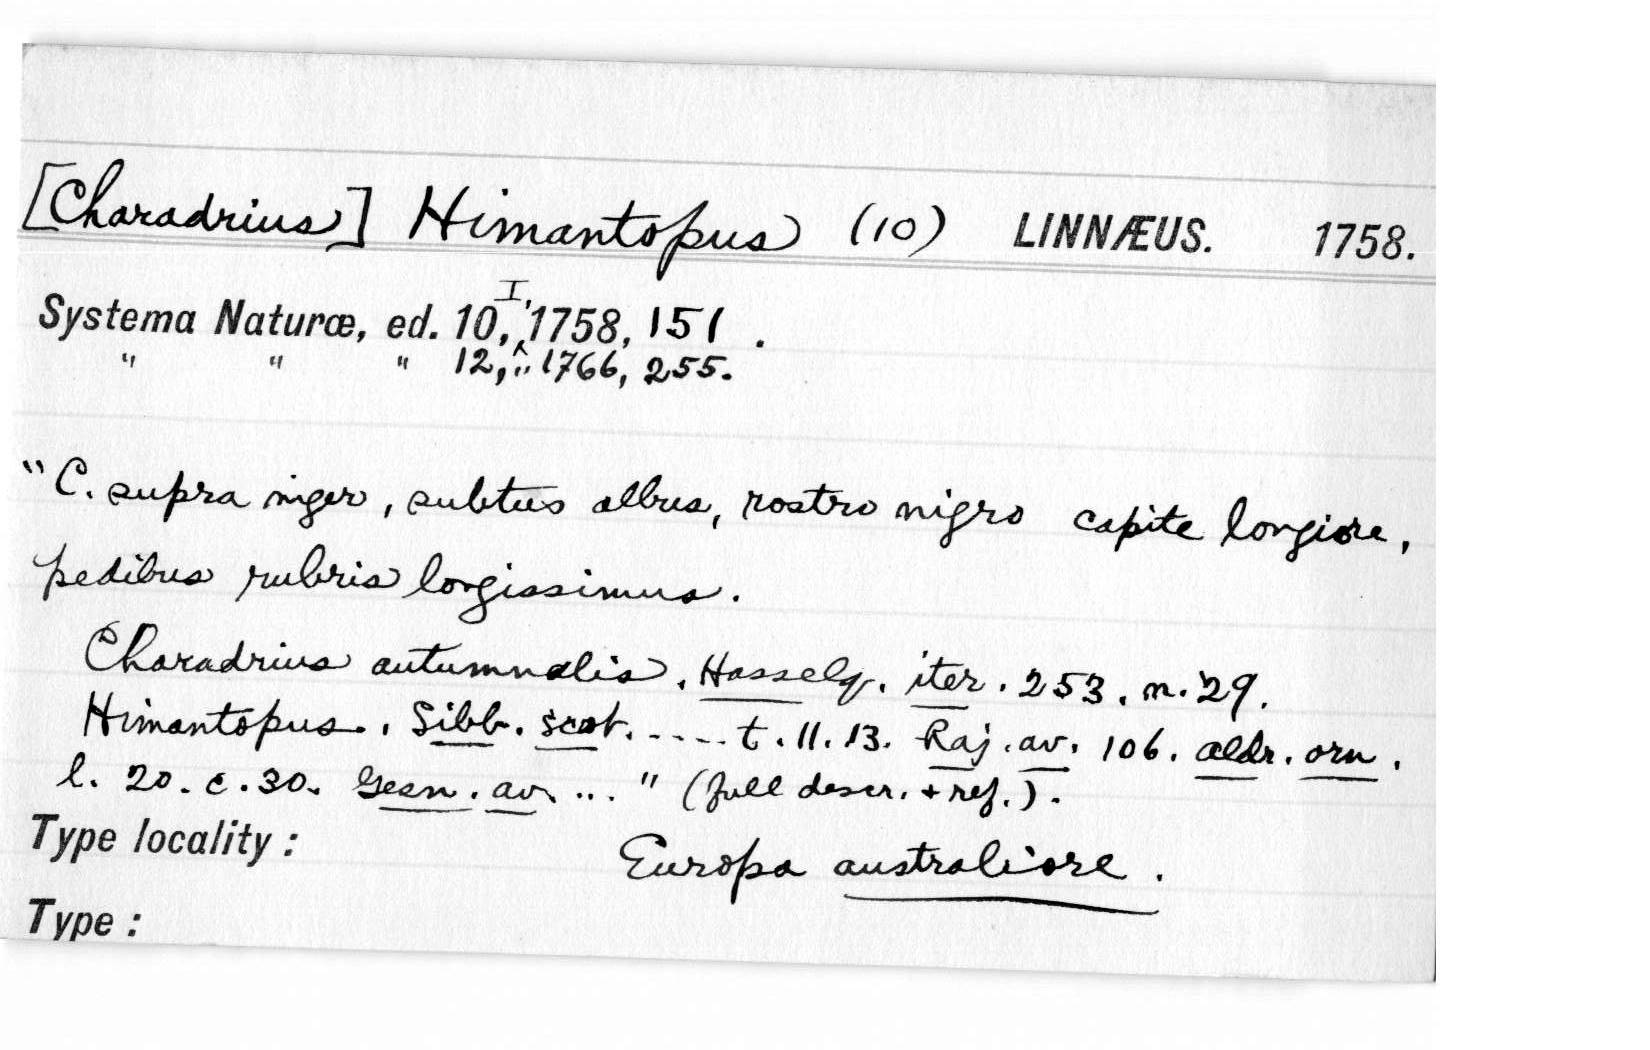 [Charadrius] Himantopus (10) LINNÆUS. 1758.
Systema Naturæ, ed. 10, I, 1758, 151 .
" " " 12, " 1766, 255.
"C. supra niger, subtus albus, rostro nigro capite longiore,
pedibus rubris longissimus.
Charadrius autumnalis. Hasselq. iter. 253. n. 29.
Himantopus. Sibb. scot. ..... t. 11. 13. Raj. av. 106. aldr. orn.
l. 20. c. 30. Gesn. av. ... " (full descr. + ref.).
Type locality : Europa australiore .
Type :